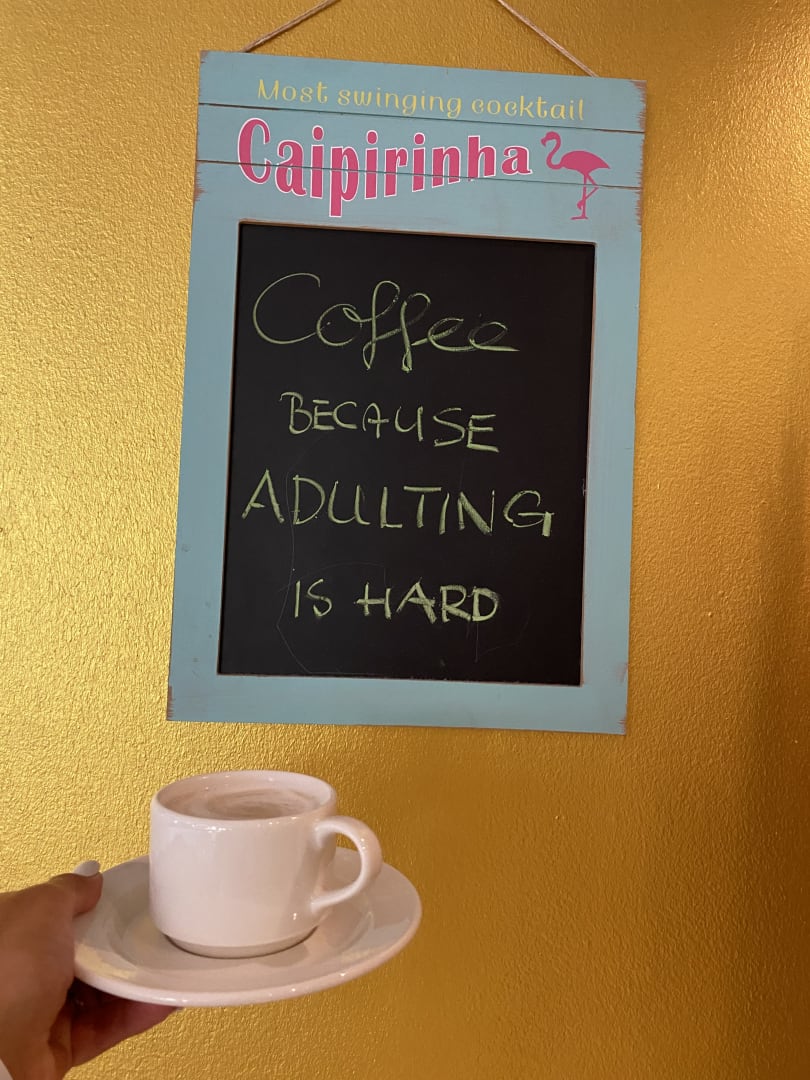 Most swinging cocktail
Caipirinha
Coffee
BECAUSE
ADULTING
IS HARD